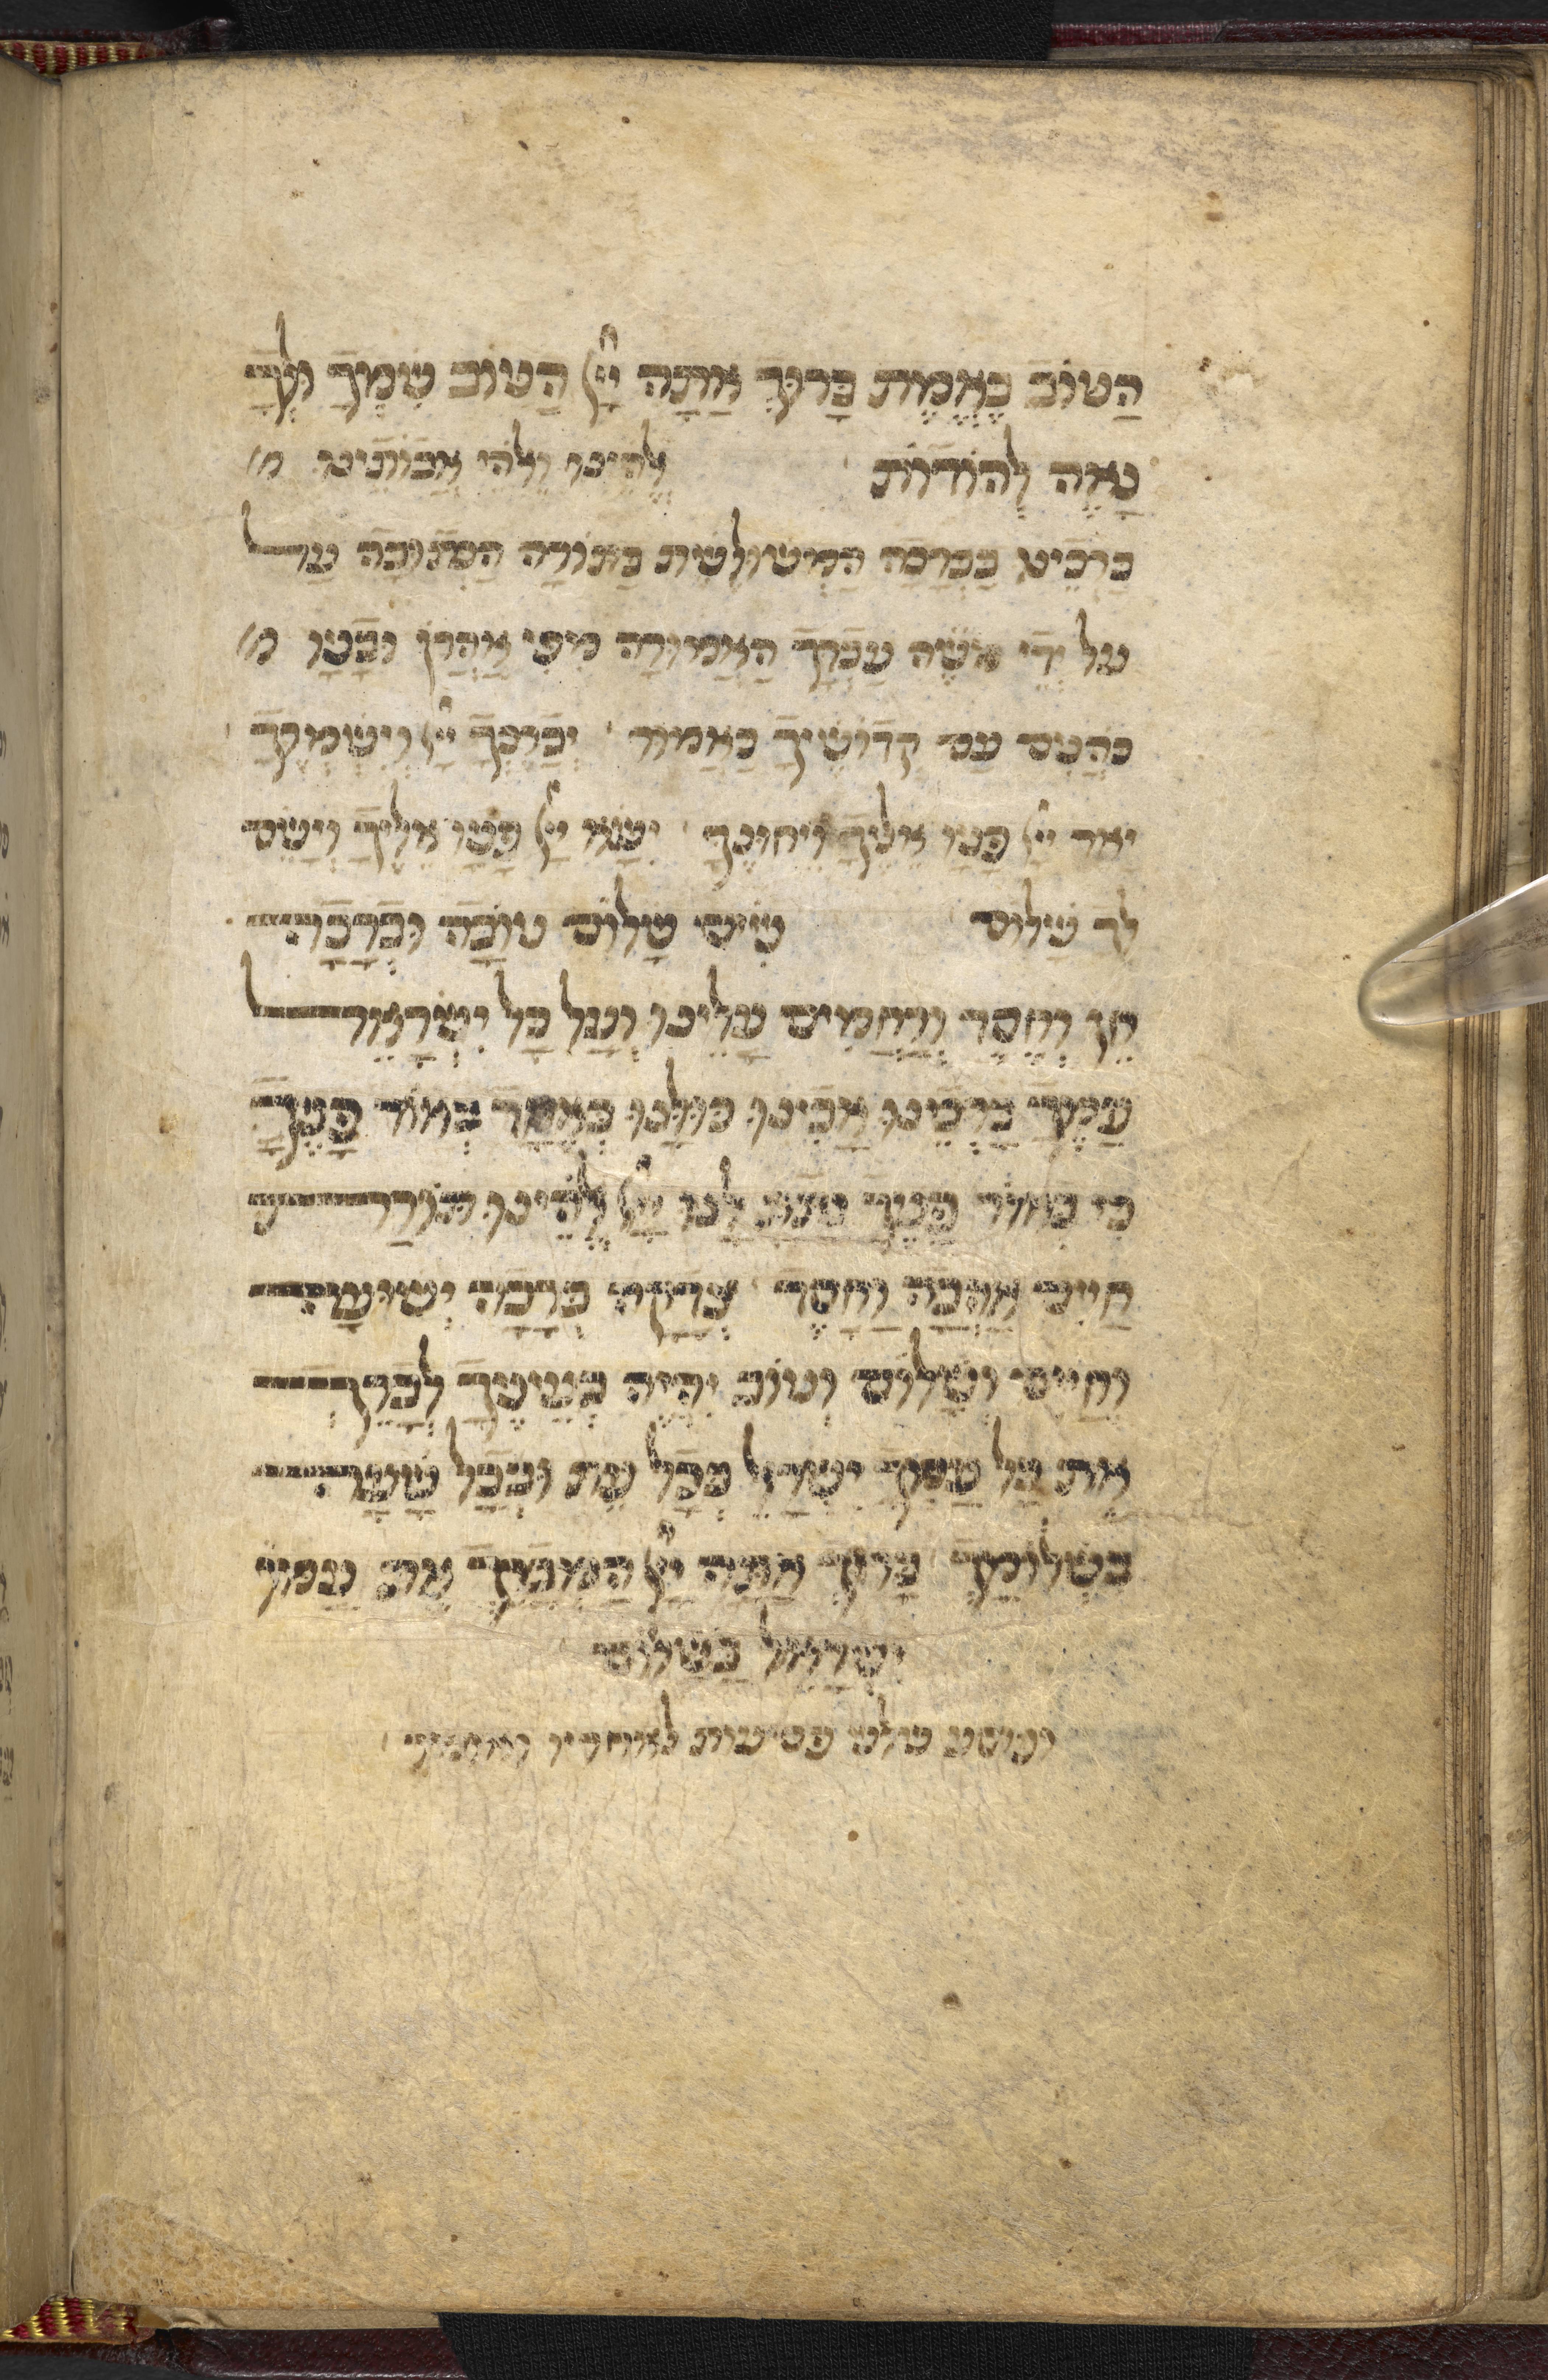 הַטוֹב בֶאֱמֶת בָרוּךְ אַתָה יְיָ הַטוֹב שִמְךָ וּלְךָ
נָאֶה לְהוֹדוֹת אֱלֹהֵינוּ וֵאלֹהֵי אֲבוֹתֵינוּ
בָרְכֵינוּ בַבְרָכָה הַמְשוּלֶשֶת בַתוֹרָה הַכְתוּבָה על
עַל יְדֵי משֶה עַבְדָךְ הָאֲמוּרָה מִפִי אַהֲרֹן וּבָנָיו
כֹהֲנִים עַם קְדוֹשֶיךָ כָאָמוּר יְבָרֶכְךָ יְיָ וְיִשְמְרֶךָ
יָאֵר יְיָ פָנָיו אֵלֶיךָ וִיחוּנֶךָ יִשָא יְיָ פָנָיו אֵלֶיךָ וְיָשֵם
לְךָ שָלוֹם שִים שָלוֹם טוֹבָה וּבְרָכָה
חֵן וָחֶסֶד וְרַחֲמִים עָלֵינוּ וְעַל כָל יִשְרָאֵל
עַמֶךָ בָרְכֵינוּ אָבִינוּ כוּלָנוּ כְאֶחָד בְאוֹר פָנֶיךָ
כִי בְאוֹר פָנֶיךָ נָתַתָ לָנוּ יְיָ אֱלֹהֵינוּ תוֹרַת
חַיִים אַהֲבָה וָחֶסֶד צְדָקָה בְרָכָה יְשוּעָה
וְחַיִים וְשָלוֹם וְטוֹב יִהְיֶה בְעֵינֶיךָ לְבָרֵךְ
אֶת כָל עַמְךָ יִשְרָאֵל בְכָל עֵת וּבְכָל שָעָה
בִשְלוֹמֶךָ בָרוּךְ אַתָה יְיָ הַמְבָרֵךְ אֶת עַמוֹ
יִשְרָאֵל בַשָלוֹם
ופוסע שלש פסיעות לאחריו ואומר